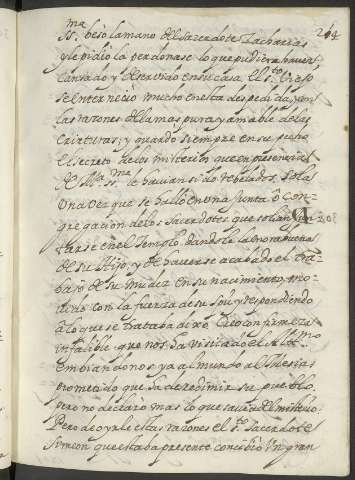 264
ma
SS. besó la mano del Sacerdote Zacharias
y le pidió la perdonase lo que pudiera haver
cansado y deservido en su casa. el Sto. Viejo
se enterneció mucho en esta despedida, y con
las razones de la mas pura y amable de las
Criaturas; y guardó siempre en su pecho
el secreto de los misterios que en presencia
de Ma. SSma. le havian sido rebelados. Sola
una vez que se halló en una Junta ó Con-
gregacion de los Sacerdotes que solian Jun-
tarse en el Templo, dandole la enorabuena
de su Hijo, y de haverse acabado el tra-
bajo de su mudez en su nacimiento, mo-
vido con la fuerza de su
á lo que se trataba dixo: Creo con firmeza
infalible que nos ha visitado el Altmo.
embiandonos ya al mundo al Mesias
prometido que ha de redimir su pueblo,
pero no declaró mas lo que savia del misterio.
Pero de oyrle estas razones el Sto. Sacerdote
Simeon que estaba presente concibió un gran